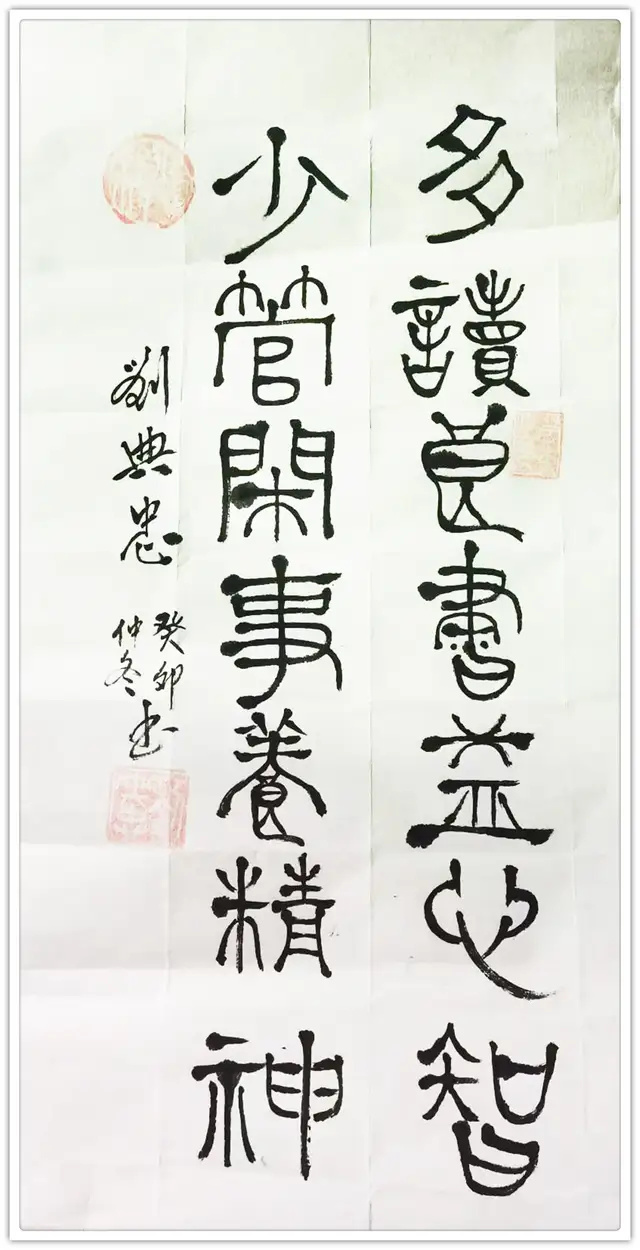 多讀良書益心智
少管閑事養精神
劉典忠
癸卯
仲冬書